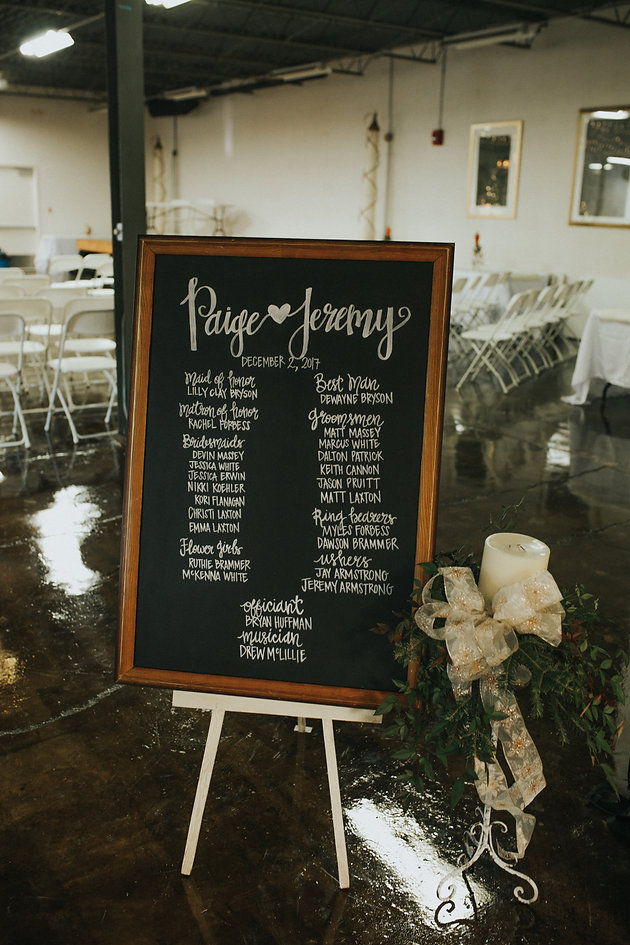 Paige ♥ Jeremy
DECEMBER 2, 2017
Maid of honor
LILLY CLAY BRYSON
Matron of honor
RACHEL FORBESS
Bridesmaids
DEVIN MASSEY
JESSICA WHITE
JESSICA ERWIN
NIKKI KOEHLER
KORI FLANAGAN
CHRISTI LAXTON
EMMA LAXTON
Flower girls
RUTHIE BRAMMER
MCKENNA WHITE
Best Man
DEWAYNE BRYSON
Groomsmen
MATT MASSEY
MARCUS WHITE
DALTON PATRICK
KEITH CANNON
JASON PRUITT
MATT LAXTON
Ring bearers
MYLES FORBESS
DAWSON BRAMMER
ushers
JAY ARMSTRONG
JEREMY ARMSTRONG
officiant
BRYAN HUFFMAN
musician
DREW MCLILLIE